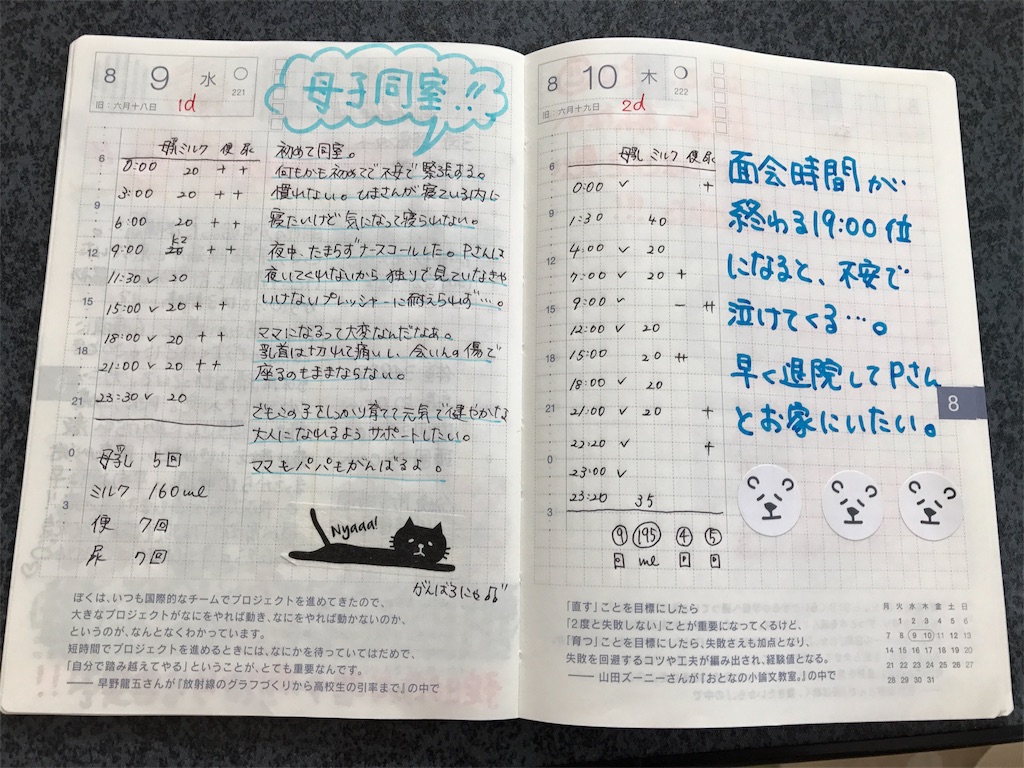 8 9 水 221
旧:六月十八日 1d
母子同室!!
母乳 ミルク 便 尿
0:00 20 + +
3:00 20 + +
6:00 20 + +
9:00 + +
11:30 ✓ 20
15:00 ✓ 20 + +
18:00 ✓ 20 + +
21:00 ✓ 20 + +
23:30 ✓ 20
母乳 5回
ミルク 160ml
便 7回
尿 7回
6
9
12
15
18
21
0
3
初めて同室。
何もかも初めてで不安で緊張する。
慣れない。ひまさんが寝ている内に
寝たいけど気になって寝られない。
夜中、たまらずナースコールした。Pさんは
夜いてくれないから独りで見ていなきゃ
いけないプレッシャーに耐えられず…。
ママになるって大変なんだなぁ。
乳首は切れて痛いし、会いんの傷で
座るのもままならない。
でもこの子をしっかり育てて元気で健やかな
大人になれるようサポートしたい。
ママもパパもがんばるよ。
Nyaaa!
がんばるにゃ♫
ぼくは、いつも国際的なチームでプロジェクトを進めてきたので、
大きなプロジェクトがなにをやれば動き、なにをやれば動かないのか、
というのが、なんとなくわかっています。
短時間でプロジェクトを進めるときには、なにかを待っていてはだめで、
「自分で踏み越えてやる」ということが、とても重要なんです。
—— 早野龍五さんが『放射線のグラフづくりから高校生の引率まで』の中で
8 10 木 222
旧:六月十九日 2d
母乳 ミルク 便 尿
0:00 ✓ +
1:30 40
4:00 ✓ 20
7:00 ✓ 20 +
9:00 ✓ − ++
12:00 ✓ 20
15:00 20 ++
18:00 ✓ 20
21:00 ✓ 20 +
22:20 ✓ +
23:00 ✓
23:20 35
⑨ 195 ④ ⑤
回 ml 回 回
6
9
12
15
18
21
0
3
面会時間が
終わる19:00位
になると、不安で
泣けてくる…。
早く退院してPさん
とお家にいたい。
8
「直す」ことを目標にしたら
「2度と失敗しない」ことが重要になってくるけど、
「育つ」ことを目標にしたら、失敗さえも加点となり、
失敗を回避するコツや工夫が編み出され、経験値となる。
—— 山田ズーニーさんが『おとなの小論文教室。』の中で
月 火 水 木 金 土 日
1 2 3 4 5 6
7 8 9 10 11 12 13
14 15 16 17 18 19 20
21 22 23 24 25 26 27
28 29 30 31